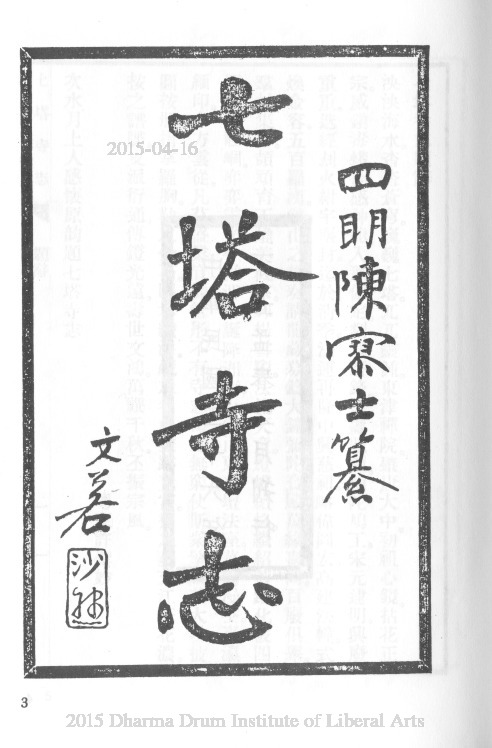 四明陳寥士纂
七塔寺志
文若
沙
2015-04-16
3
2015 Dharma Drum Institute of Liberal Arts